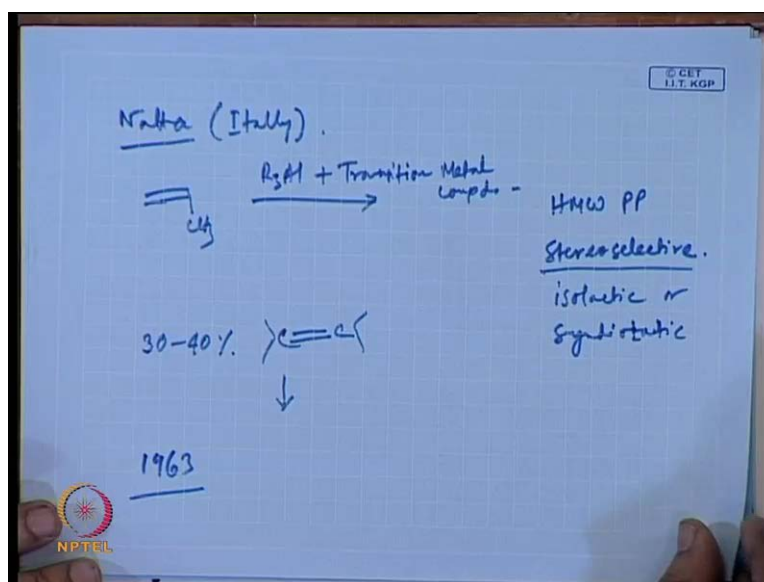 © CET
I.I.T. KGP
Natta (Itally).
R3Al + Transition Metal
compds -
CH3
HMW PP
Stereoselective.
isotactic or
Syndiotatic
30-40%. >C=C<
↓
1963
NPTEL